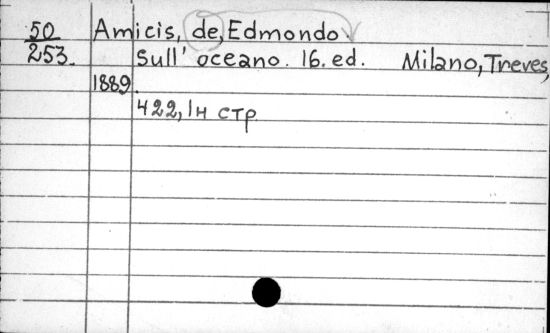 50 Amicis, de, Edmondo
253. Sull' oceano. 16. ed. Milano, Treves,
1889.
422, 1н стр